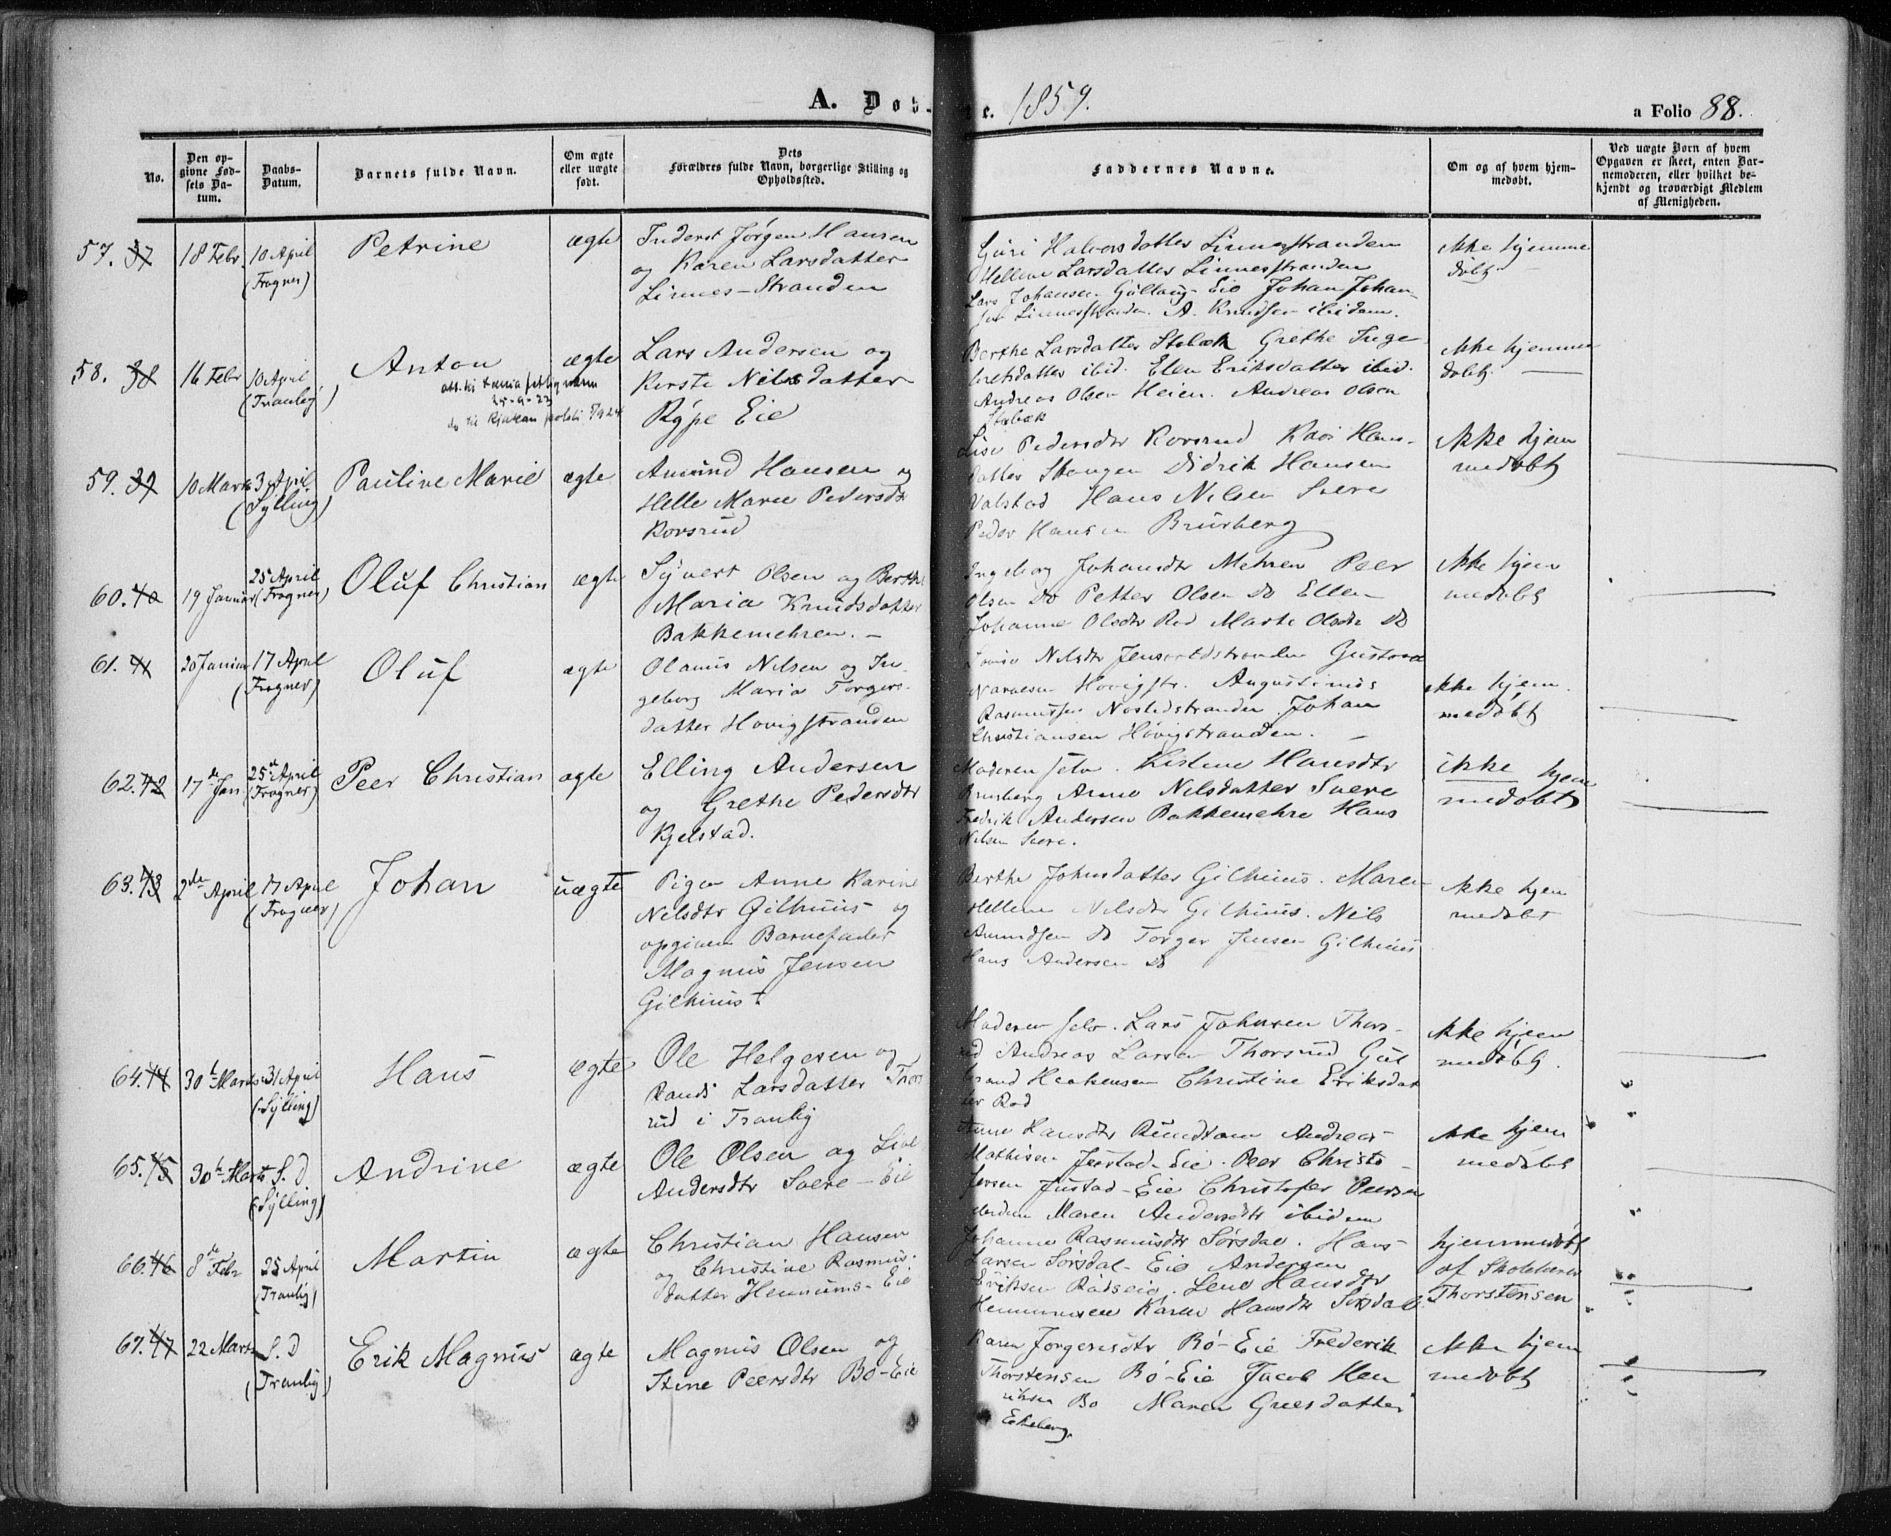 A. Døb- te. 1859. a Folio 88.
No.
Den op-
givne Fød-
sels Da-
tum.
Daabs-
Datum.
Barnets fulde Navn.
Om ægte
eller uægte
født.
Dets
Forældres fulde Navn, borgerlige Stilling og
Opholdssted.
Faddernes Navne.
Om og af hvem hjem-
medøbt.
Ved uægte Børn af hvem
Opgaven er skeet, enten Bar-
nemoderen, eller hvilket be-
kjendt og troværdigt Medlem
af Menigheden.
57. 37 18 Febr. 10 April (Frogner) Petrine ægte
Inderst Jørgen Hansen
og Karen Larsdatter
Linnes-Stranden
Guri Halvorsdatter Linnesstranden
Hellene Larsdatter Linnesstranden
Lars Johansen Gullaug-Eie Johan Johan-
sen Linnesstranden. A. Knudsen ibidem.
Ikke hjemme
døbt
58. 38 16 Febr 10 April (Tranby) Anton ægte
Lars Andersen og
Kirsti Nilsdatter
Rype Eie
Berthe Larsdatter Stabæk Grethe Inge
bretsdatter ibid. Elen Eriksdatter ibid.
Andreas Olsen Heien. Andreas Olsen
Stabæk
Ikke hjemme
døbt.
59. 39 10 Marts 3 April (Sylling) Pauline Marie ægte
Amund Hansen og
Helle Marie Pedersdtr
Korsrud
Lise Pedersdtr Korsrud Kari Hans-
datter Skangen Didrik Hansen
Valstad Hans Nilsen Svere
Peder Hansen Brurberg
Ikke hjem
medøbt
60. 40 19 Januar 25 April (Frogner) Oluf Christian ægte
Syvert Olsen og Berthe
Maria Knudsdatter
Bakkemehren. -
Ingeborg Johansdtr Mehren Peer
Olsen Do Petter Olsen Do Ellen
Johanne Olsdtr Rød Marte Olsdtr Do
Ikke hjem
medøbt
61. 41 20 Januar 17 April (Frogner) Oluf ægte
Olaus Nilsen og In-
geborg Maria Torgers-
datter Hovigstranden
Nilsdtr Gustava
Hovigstr. Augustinus
Rasmussen Nøstedstranden Johan
Christiansen Hövigstranden.
Ikke hjem.
medøbt
62. 42 17de Jan 25de April (Frogner) Peer Christian ægte
Elling Andersen
og Grethe Pedersdtr
Kjelstad.
Moderen selv. Hansdtr
Brurberg Anne Nilsdatter Svere
Fredrik Andersen Bakkemehre Hans
Nilsen Svere.
ikke hjem
medøbt
63. 43 2de April 17 April (Frogner) Johan uægte
Pigen Anne Karine
Nilsdtr Gilhuus og
opgiven Barnefader
Magnus Jensen
Gilhuus
Berthe Johnsdatter Gilhuus. Maren
Hellene Nilsdtr Gilhuus. Nils
Amundsen Do Torger Jensen Gilhuus
Hans Andersen Do
Ikke hjem
medøbt
64. 44 30te Marts 31 April (Sylling) Hans ægte
Ole Helgesen og
Randi Larsdatter Thors
rud i Tranby
Moderen selv. Lars Johnsen Thors-
rud Andreas Larsen Thorsrud Gul
brand Christine Eriksdat
ter Rød
Ikke hjem
medøbt.
65. 45 30te Marts S. D (Sylling) Andrine ægte
Ole Olsen og Live
Andersdtr Svere-Eie
Anne Hansdtr Andreas
Mathisen Justad-Eie. Peer Christo-
fersen Justad-Eie Christofer Peersen
ibidem Maren Andersdtr ibidem
Ikke hjem
medøbt
66. 46 8de Febr 25 April (Tranby) Martin ægte
Christian Hansen
og Christine Rasmus-
datter Hennums-Eie
Johanne Rasmusdtr Sørsdal. Hans
Larsen Sørsdal-Eie Andersen
Eriksen Rødseie. Lene Hansdtr
Hennumseie Karen Hansdtr Sørsdal
hjemmedøbt
af Skolelærer
Thorstensen
67. 47 22 Marts S. D (Tranby) Erik Magnus ægte
Magnus Olsen og
Stine Peersdtr Bø-Eie
Karen Jørgensdtr Bø-Eie Frederik
Thorstensen Bø-Eie Jacob Hen
riksen Bø Maren Gulesdatter
Eckeberg.
Ikke hjem
medøbt